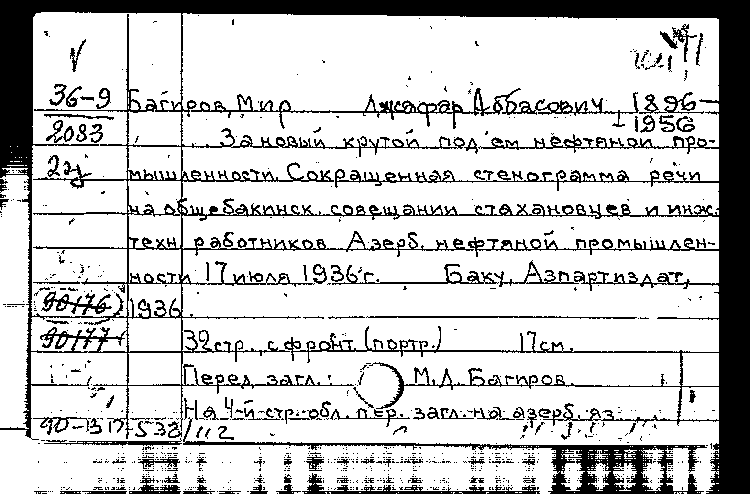 V
36-9 Багиров, Мир Джафар Аббасович, 1896-
2083 1956
За новый крутой подъем нефтяной про-
2эј мышленности. Сокращенная стенограмма речи
на общебакинск. совещании стахановцев и инж.
техн. работников Азерб. нефтяной промышлен-
ности 17 июля 1936 г. Баку, Азпартиздат,
90176 1936.
90177 32 стр., с фронт. (портр.) 17 см.
Перед загл.: М.Д. Багиров.
На 4-й стр. обл. пер. загл. на азерб. яз.